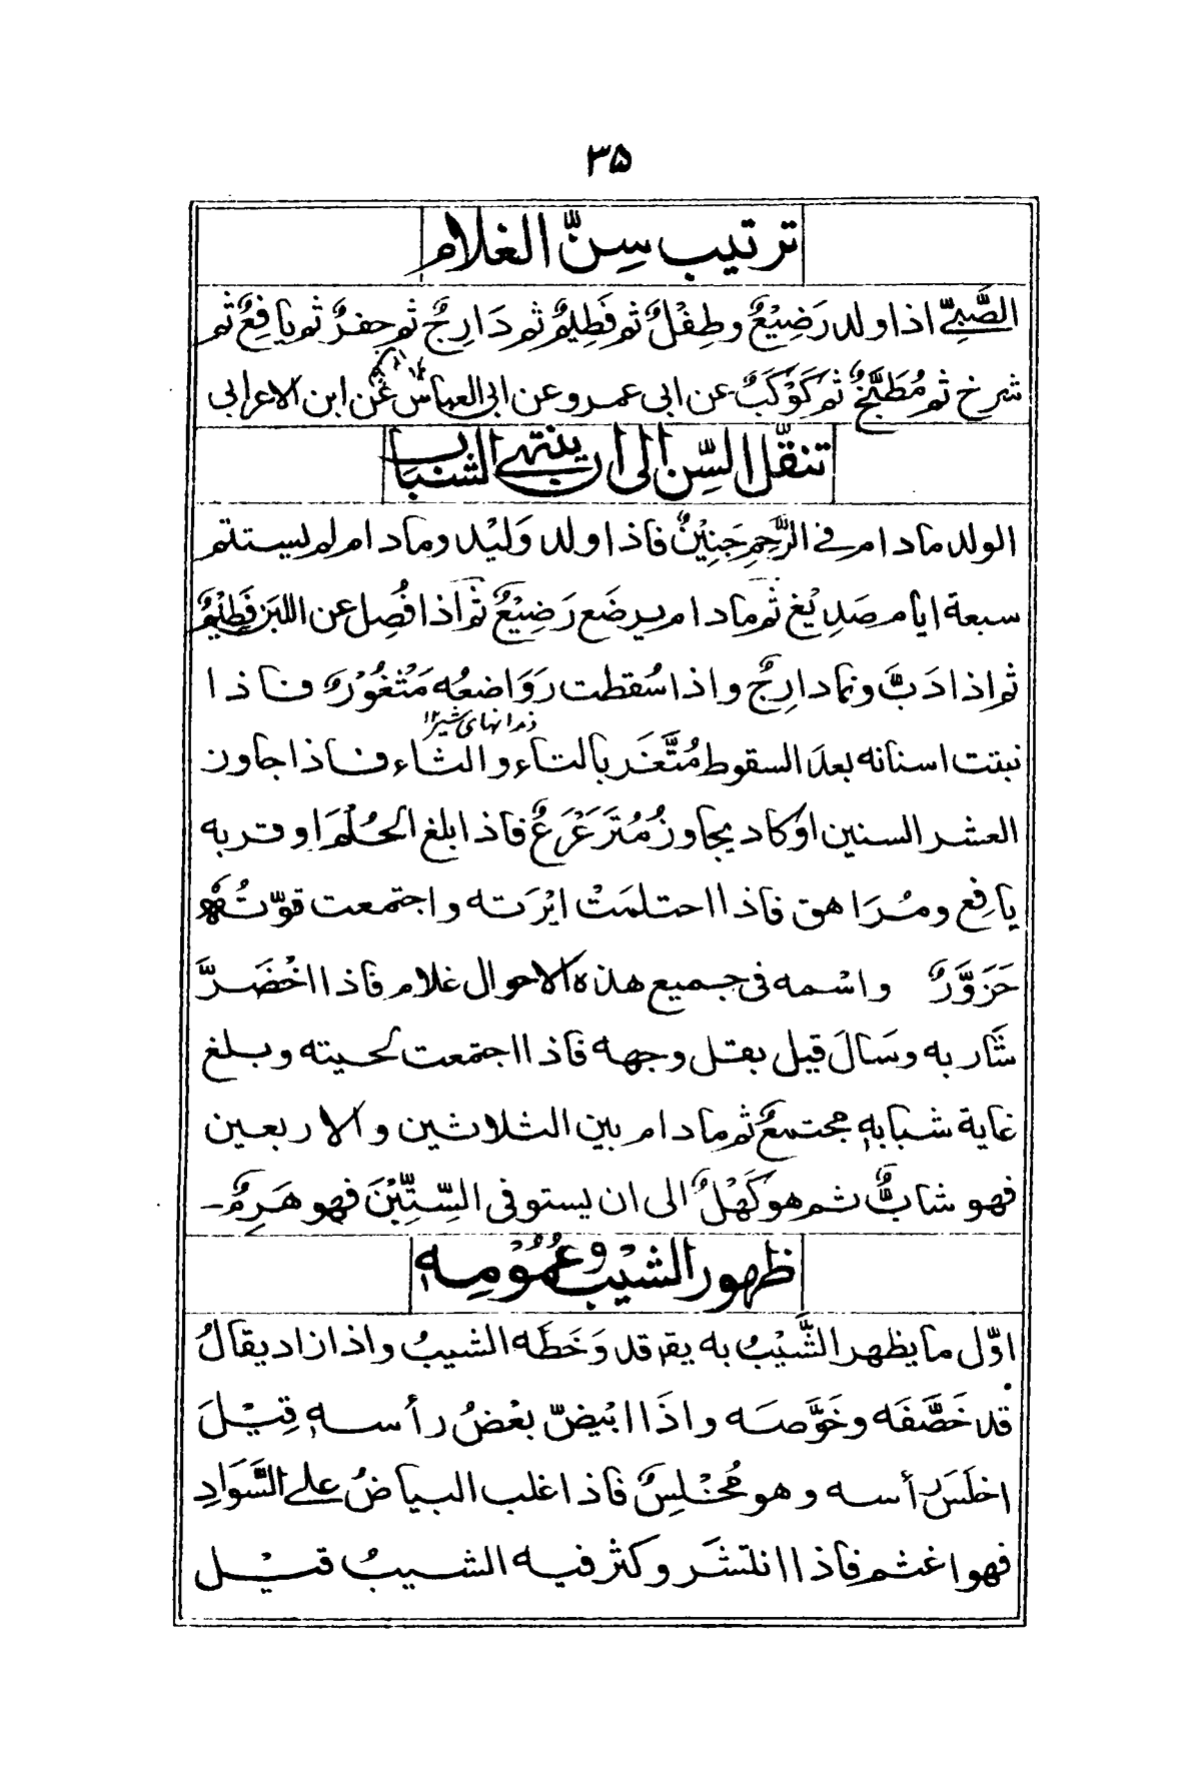 ۳۵
ترتیب سِنّ الغلام
الصَّبِيّ اذا ولد رَضِيْعٌ وطِفْلٌ ثم فَطِيْمٌ ثم دَارِجٌ ثم جفرٌ ثم يافِعٌ ثم
شرخ ثم مُطَبَّخٌ ثم كَوْكَبٌ عن ابى عمرو عن ابى العباس عَن ابن الاعرابى
تنقّل السِّن الى ان ينتهى الشباب
الولد مادام فى الرَّحِمِ جَنِيْنٌ فاذا ولد وَلِيْد ومادام لم يستتم
سبعة ايام صَدِيْغ ثم مادام يرضَع رَضِيْعٌ ثم اذا فُصِل عن اللبن فَطِيْمٌ
ثم اذا دَبَّ ونما دارِجٌ واذا سُقطت رَوَاضعُه مَثْغُوْرٌ فاذا
نبتت اسنانه بعدَ السقوط مُتَّغَر بالتاء والثاء فاذا جاوز
العشر السنين او كاد يجاوزُ مُتَرَعْرِعٌ فاذا بلغ الحُلُمَ او قربه
يافِع ومُرَاهق فاذا احتلمَتْ ايْرَته واجتمعت قوّتُه
حَزَوَّرٌ واسْمه فى جميع هذه الاحوال غلام فاذا اخْضَرَّ
شَاربه وسَالَ قيل بقل وجهه فاذا اجتمعت لحيته وبلغ
غاية شبابهٖ مجتمعٌ ثم مادام بين الثلاثين والاربعين
فهو شابٌّ ثم هو كَهْلٌ الى ان يستوفى السِّتِّيْنَ فهو هَرِمٌ۔
ظهور الشيْب وعُمُوْمِهٖ
اوّل ما يظهر الشَّيْبُ به يق قد وَخَطَه الشيبُ واذا زاد يقالُ
قد خَصَّفَه وخَوَّصَه واذَا ابْيضّ بعْضُ رأسهٖ قِيْلَ
اخلَسَ رأسه وهو مُخْلِسٌ فاذا غلب البياضُ على السَّوَادِ
فهو اغثم فاذا انتشَر وكثر فيه الشيبُ قيْل